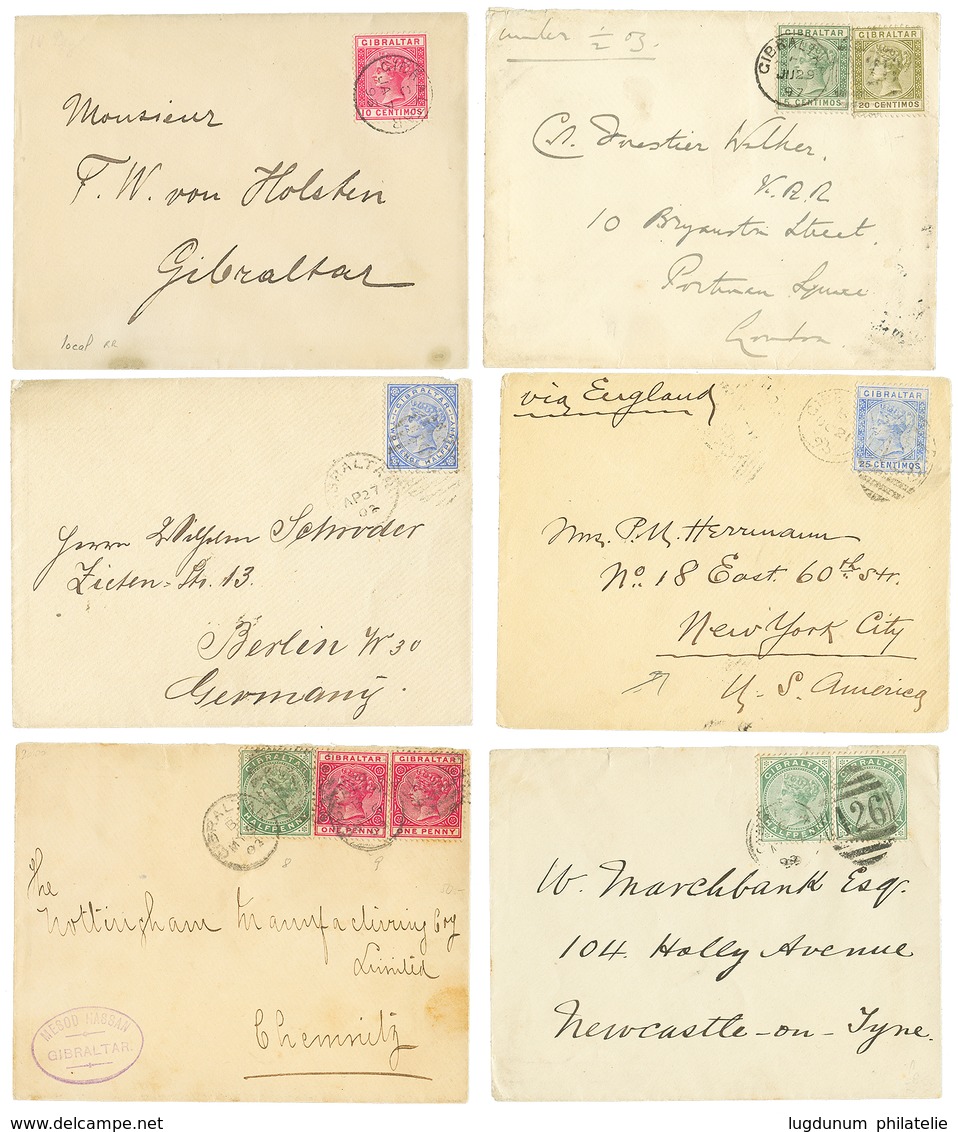 GIBRALTAR
10 CENTIMOS
Monsieur
F. W. von Holstein
Gibraltar
local RR
under 1/2 oz.
GIBRALTAR
JU 29
97
GIBRALTAR
5 CENTIMOS
GIBRALTAR
20 CENTIMOS
Forestier Walker.
10 Bryanston Street.
Portman Square
London.
GIBRALTAR
TWO PENCE HALFPENNY
GIBRALTAR
AP 27
Herrn Wilhelm Schroder
Zieten-Str. 13.
Berlin W 30
Germany.
via England
GIBRALTAR
25 CENTIMOS
Mrs. P. M. Herrmann
No. 18 East. 60th Str.
New York City
U. S. America
GIBRALTAR
HALFPENNY
GIBRALTAR
ONE PENNY
GIBRALTAR
ONE PENNY
8
9
The
Nottingham Manufacturing Coy
Limited
Chemnitz
MESOD NASSAN
GIBRALTAR.
GIBRALTAR
HALFPENNY
GIBRALTAR
A26
W. Marchbank Esq.
104. Holly Avenue
Newcastle-on-Tyne.
www.delcampe.net
lugdunum philatelie